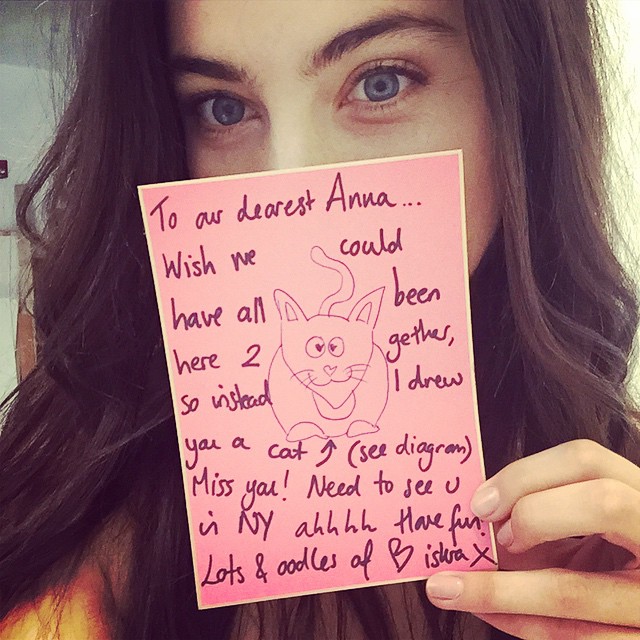 To our dearest Anna...
Wish we could
have all been
here 2 gether,
so instead I drew
you a cat ↑ (see diagram)
Miss you! Need to see u
in NY ahhhh Have fun!
Lots & oodles of ♡ iskra x